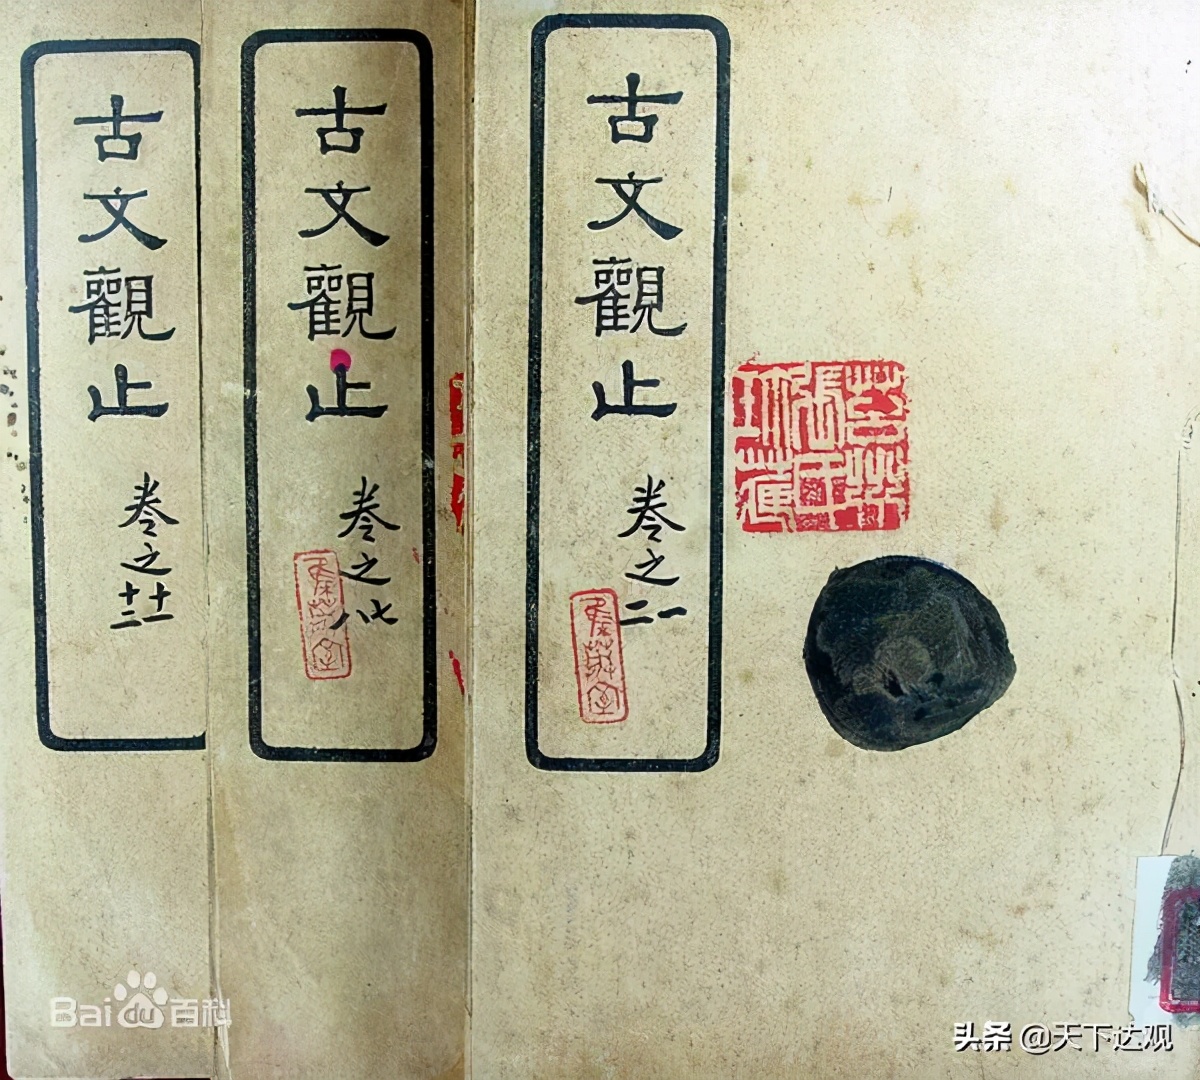 古文觀止
卷之一二
古文觀止
卷之七八
古文觀止
卷之十一十二
Bai du 百科
头条 @天下达观